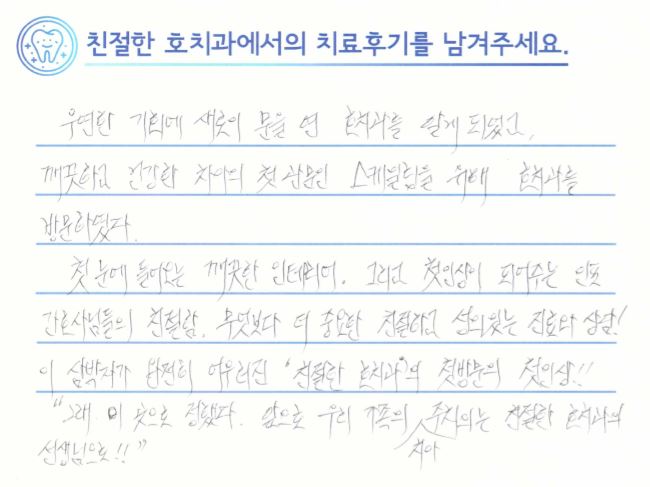 친절한 호치과에서의 치료후기를 남겨주세요.
우연한 기회에 새로이 문을 연 호치과를 알게 되었고,
깨끗하고 건강한 치아의 첫 관문인 스케일링을 위해 호치과를
방문하였다.
첫 눈에 들어오는 깨끗한 인테리어. 그리고 첫인상이 되어주는 인포
간호사님들의 친절함. 무엇보다 더 중요한 친절하고 성의있는 진료와 상담!
이 삼박자가 완편히 어우러진 '친절한 호치과'의 첫방문의 첫인상!!
"그래. 이 곳으로 정했다. 앞으로 우리 가족의 치아 주치의는 친절한 호치과의
선생님으로!!"